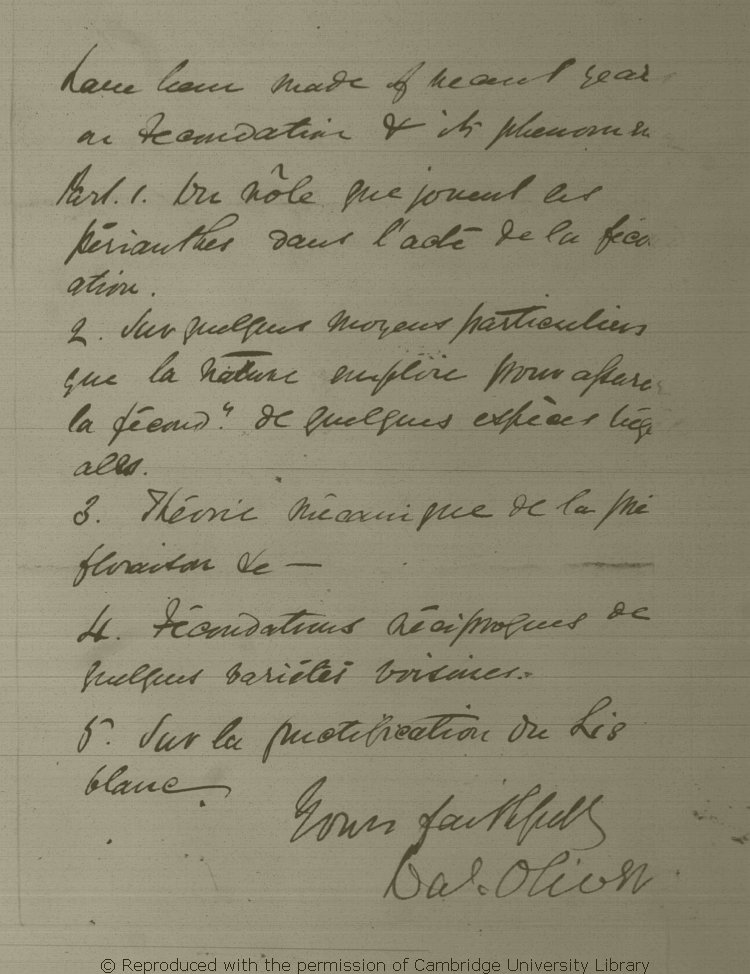 have been made of recent year
on Fécondation & its phenomen
Part. 1. Du rôle que jouent les
périanthes dans l'acte de la féco
ation.
2. Sur quelques moyens particuliers
que la nature emploie pour assurer
la fécond.n de quelques espèces vég
ales.
3. Théorie mécanique de la pré
floraison &c —
4. Fécondations réciproques de
quelques variétés voisines.
5. Sur la fructification du Lis
blanc.
Yours faithfully
Dal. Oliver
© Reproduced with the permission of Cambridge University Library